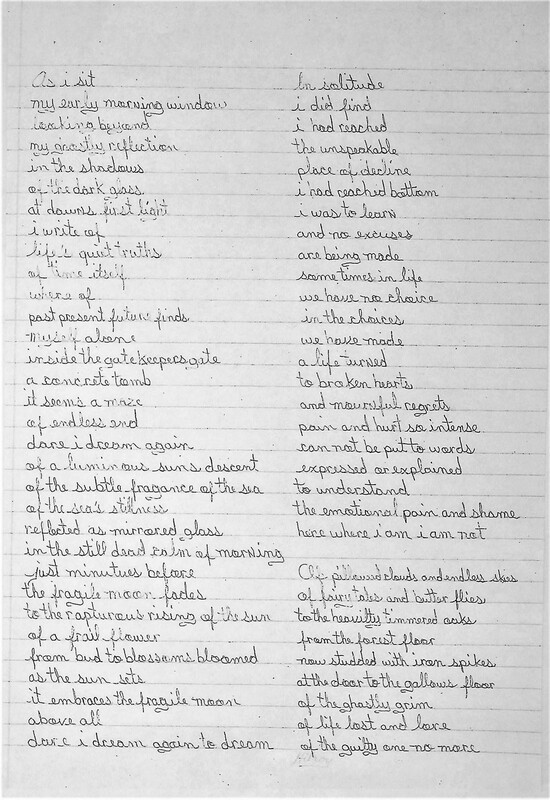 As i sit
my early morning window
looking beyond
my ghostly reflection
in the shadows
of the dark glass
at dawns first light
i write of
life's quiet truths
of time itself
where of
past present future finds
myself alone
inside the gatekeepers gate
a concrete tomb
it seems a maze
of endless end
dare i dream again
of a luminous suns descent
of the subtle fragance of the sea
of the sea's stillness
reflected as mirrored glass
in the still dead calm of morning
just minutues before
the fragile moon fades
to the rapturous rising of the sun
of a frail flower
from bud to blossoms bloomed
as the sun sets
it embraces the fragile moon
above all
dare i dream again to dream
In solitude
i did find
i had reached
the unspeakable
place of decline
i had reached bottom
i was to learn
and no excuses
are being made
sometimes in life
we have no choice
in the choices
we have made
a life turned
to broken hearts
and mournful regrets
pain and hurt so intense
can not be put to words
expressed or explained
to understand
the emotional pain and shame
here where i am i am not
Of pillowed clouds and endless skies
of fairy tales and butter flies
to the heavilty timmered oaks
from the forest floor
now studded with iron spikes
at the door to the gallows floor
of the ghastly grim
of life lost and love
of the guilty one no more